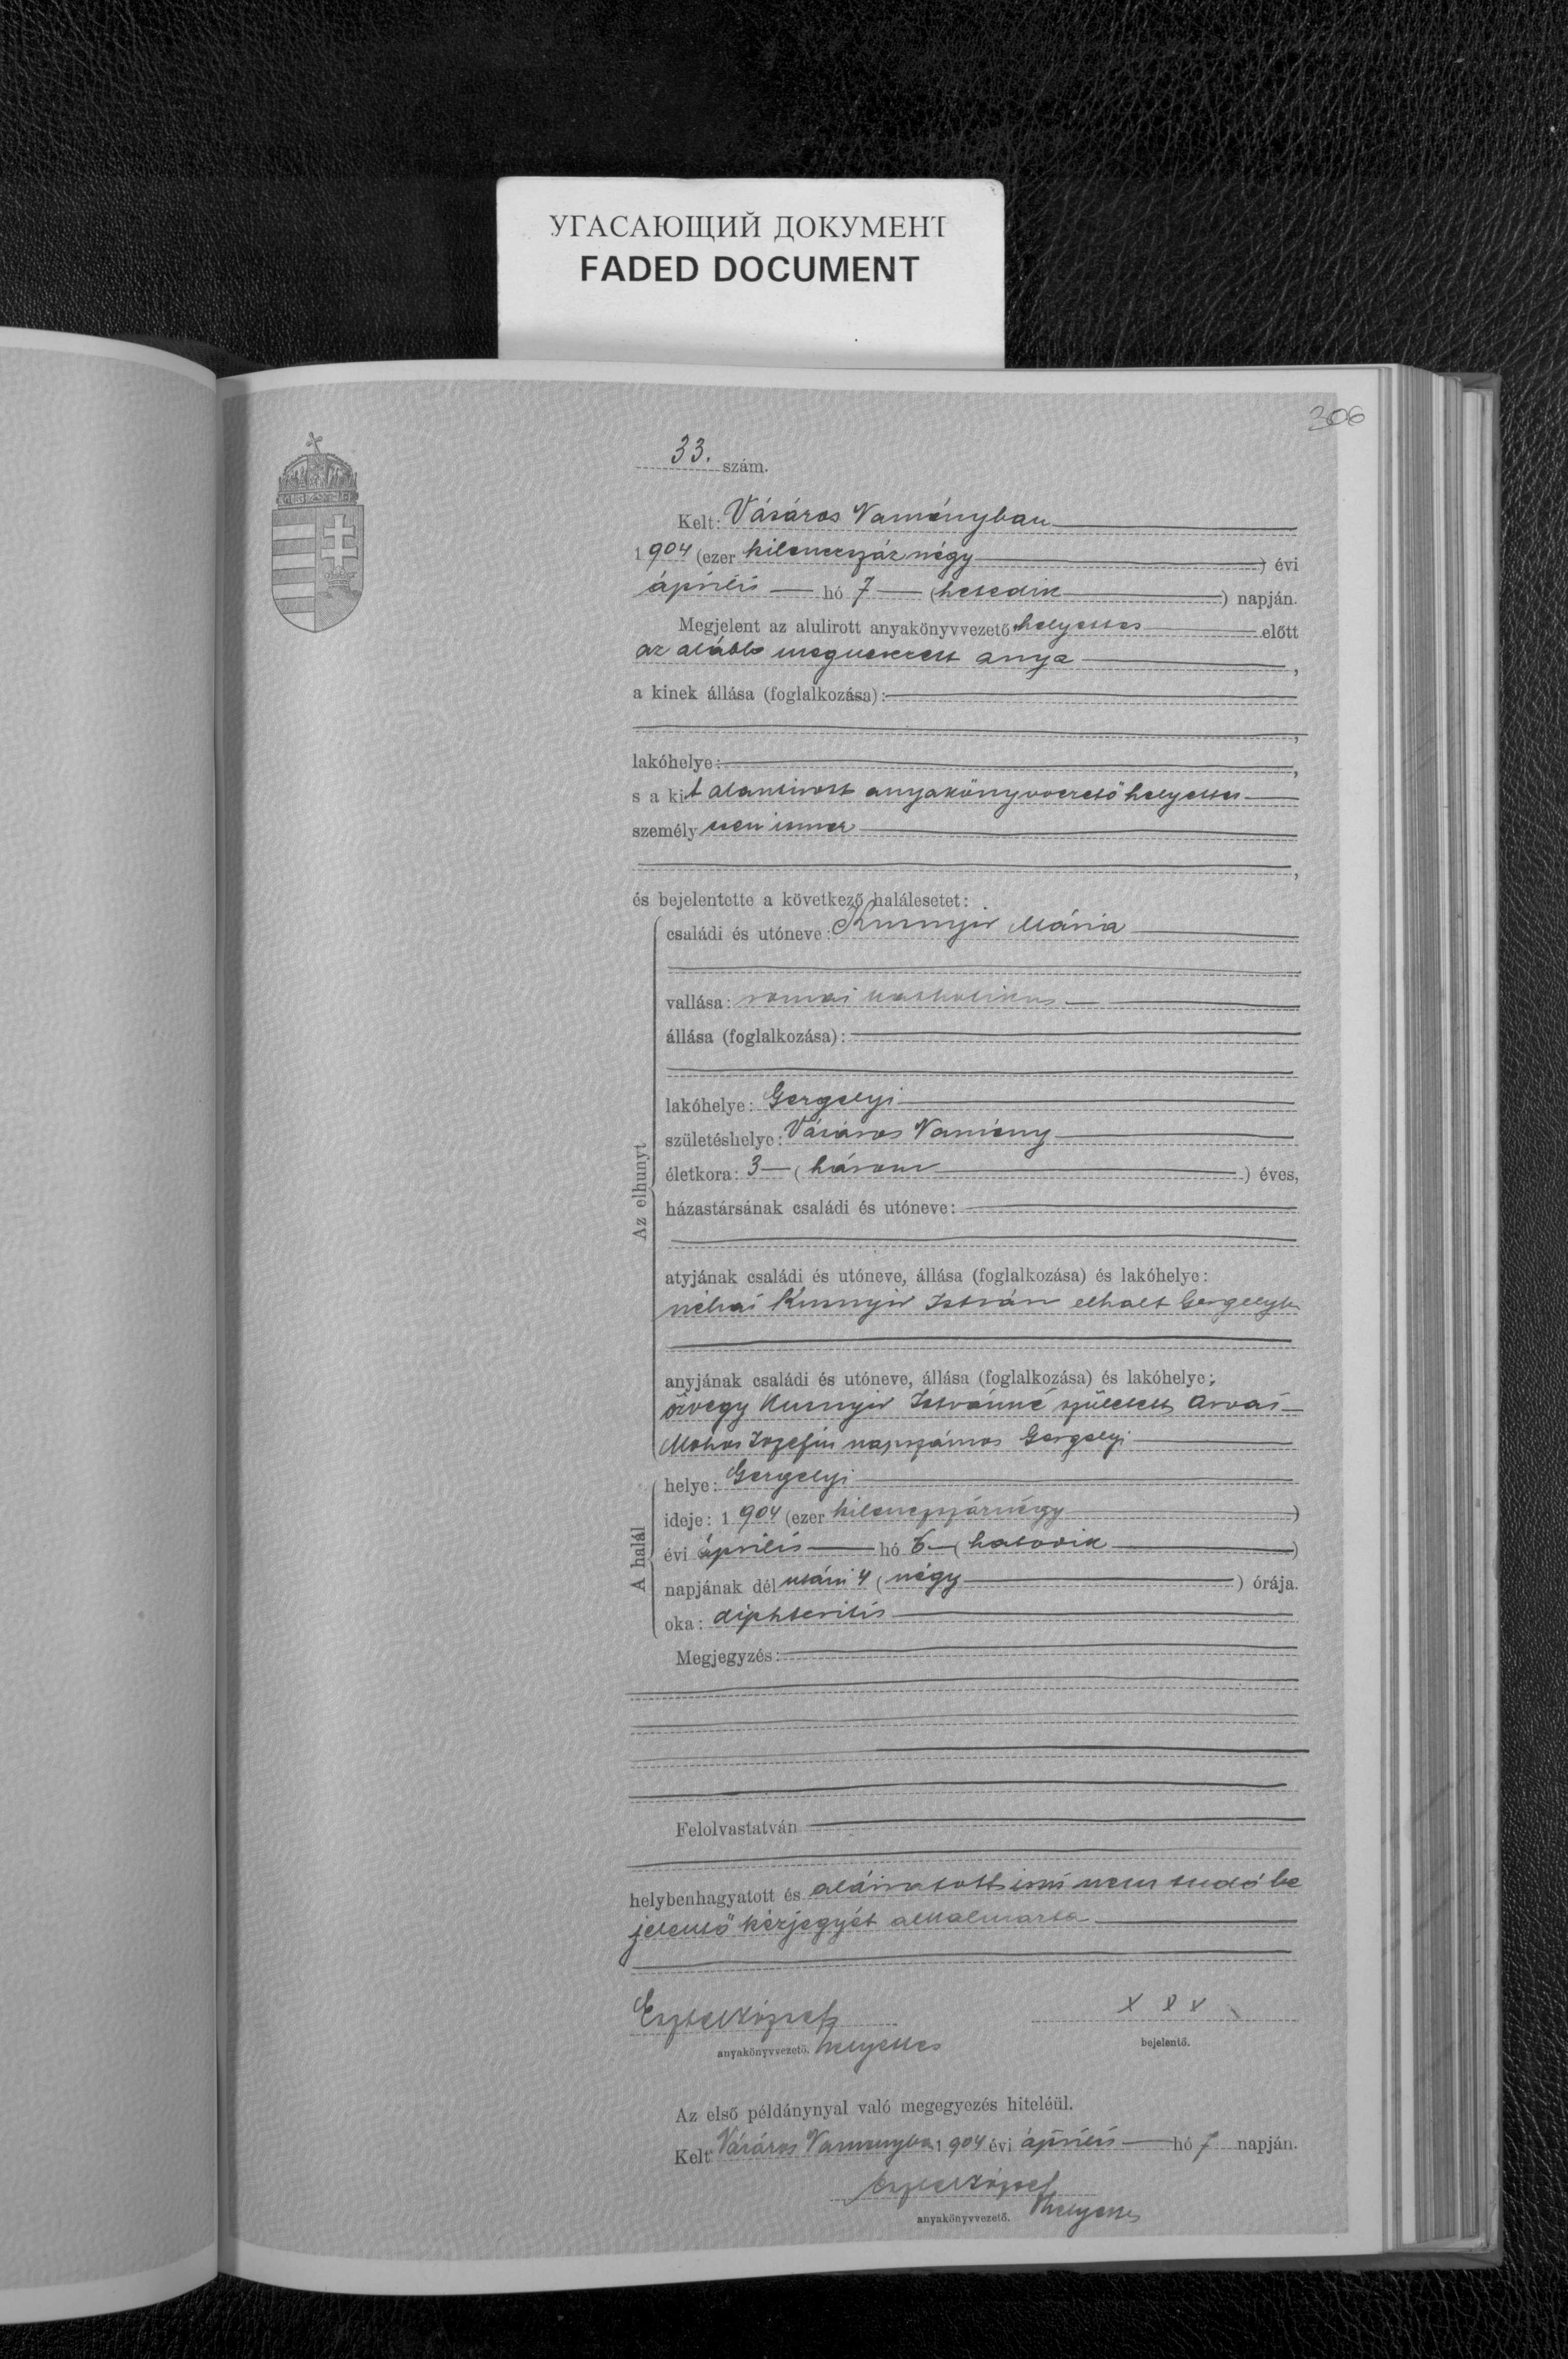 УГАСАЮЩИЙ ДОКУМЕНТ
FADED DOCUMENT
306
33. szám.
Kelt: Vásáros Naményban
1904 (ezer kilenczszáz négy) évi
április hó 7 (hetedik) napján.
Megjelent az alulirott anyakönyvvezető helyettes előtt
az alább megnevezett anya,
a kinek állása (foglalkozása):
,
lakóhelye:,
s a kit alantirott anyakönyvvezető helyettes
személyesen ismer
,
és bejelentette a következő halálesetet:
Az elhunyt
családi és utóneve: Kusnyir Mária
vallása: romai katholikus
állása (foglalkozása):
lakóhelye: Gergelyi
születéshelye: Vásáros Namény
életkora: 3 (három) éves,
házastársának családi és utóneve:
atyjának családi és utóneve, állása (foglalkozása) és lakóhelye:
néhai Kusnyir István elhalt Gergelyi
anyjának családi és utóneve, állása (foglalkozása) és lakóhelye:
özvegy Kusnyir Istvánné született
Jozefin napszámos Gergelyi
A halál
helye: Gergelyi
ideje: 1904 (ezer kilenczszáznégy)
évi április hó 6 (hatodik)
napjának dél utáni 4 (négy) órája.
oka: diphteritis
Megjegyzés:
Felolvastatván
helybenhagyatott és aláiratott irni nem tudó be
jelentő kézjegyét alkalmazta
József
anyakönyvvezető. helyettes
x x x
bejelentő.
Az első példánynyal való megegyezés hiteléül.
Kelt Vásáros Naményba 1904 évi április hó 7 napján.
József
anyakönyvvezető. helyettes